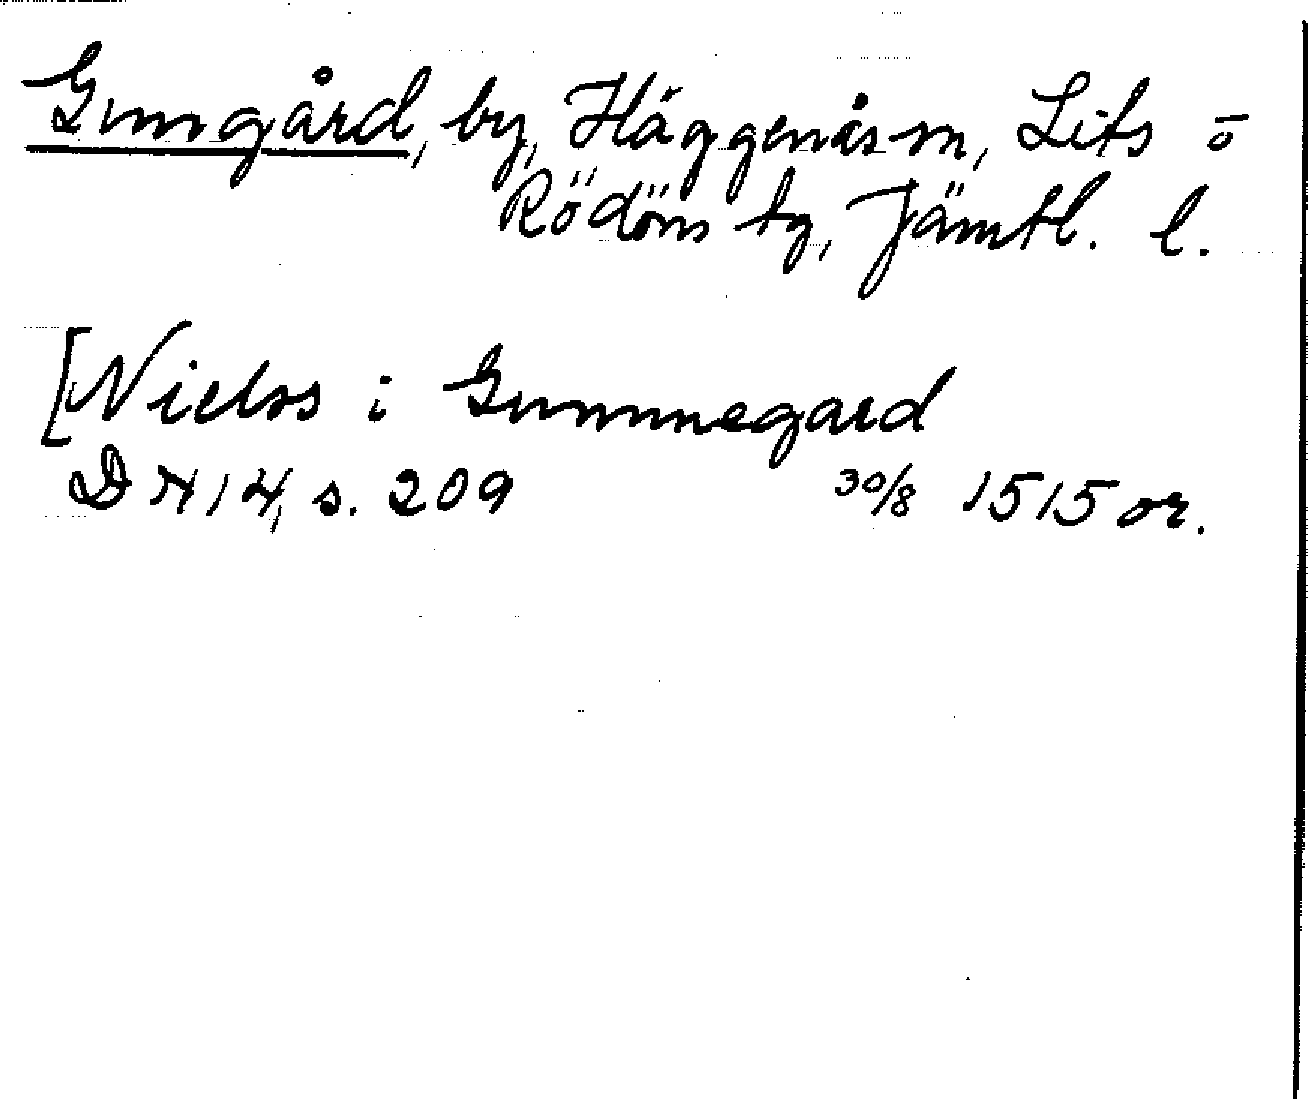 Gungård, by, Häggenås sn, Lits o
Rödöns tg, Jämtl. l.
[Nielss i Gunnnegard
DN 14, s. 209 30/8 1515 or.